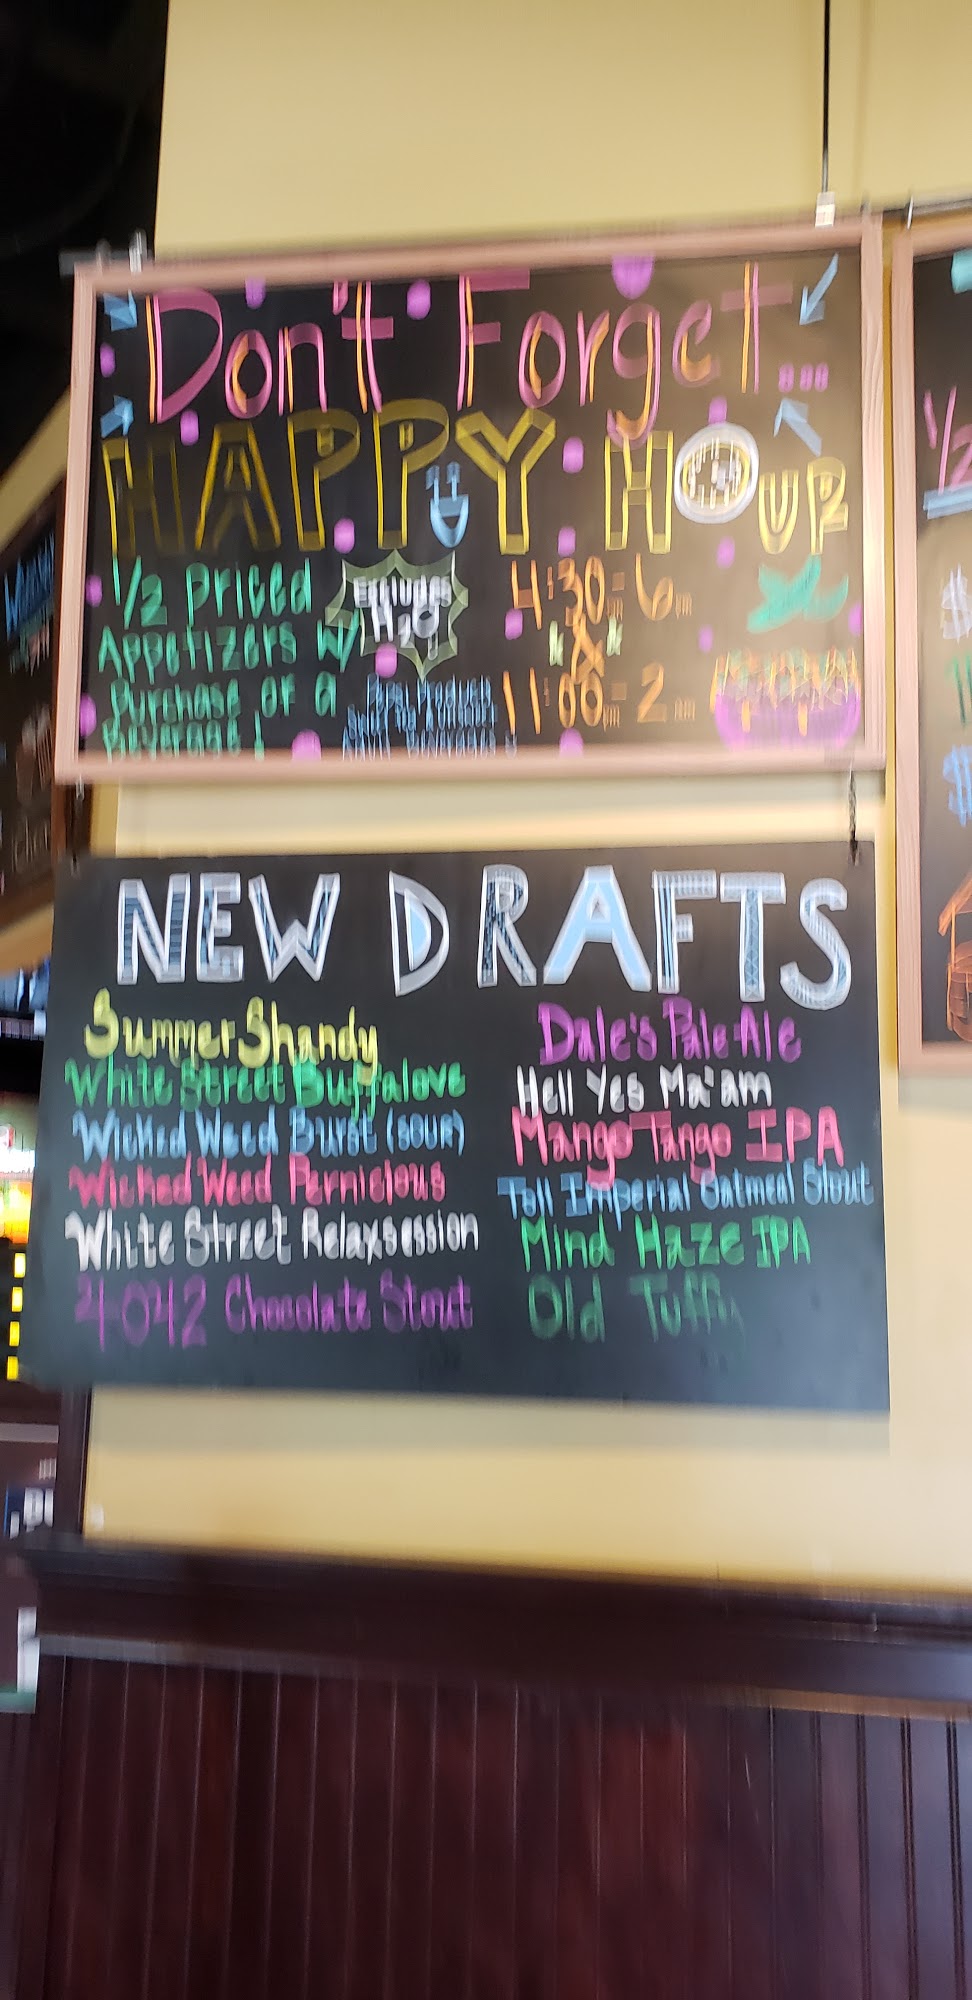 Don't Forget...
HAPPY HOUR
1/2 Priced
Appetizers w/
Purchase of a
Beverage!
Excludes
H2O
4:30pm-6pm
&
11:00pm-2am
NEW DRAFTS
Summer Shandy
White Street Buffalove
Wicked Weed Burst (SOUR)
Wicked Weed Pernicious
White Street Relaxsession
Chocolate Stout
Dale's Pale Ale
Hell Yes Ma'am
Mango Tango IPA
Toll Imperial Oatmeal Stout
Mind Haze IPA
Old Tuffy
1/2
$
$